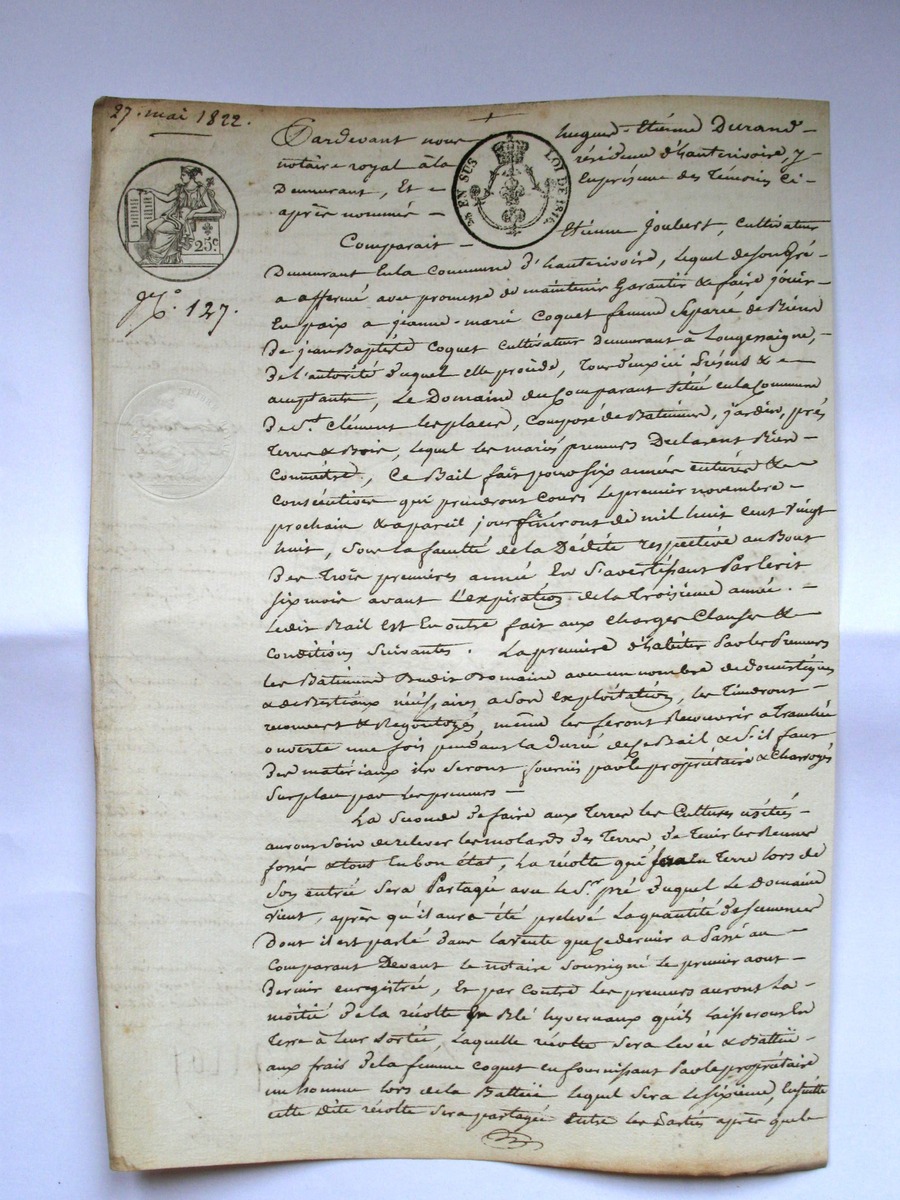 27. mai 1822.
Pardevant nous hugues-Etienne Durand-
notaire royal à la résidence d'hauterivoire, y
Demeurant, Et en présence des Témoins Ci-
après nommés -
EN SUS LOI DE 1816.
25c
Comparait - Etienne Joubert, cultivateur
Demeurant En la Commune d'hauterivoire, lequel de son Gré-
a affermé avec promesse de maintenir Garantir & faire jouir-
En paix a jeanne-marie Coquet femme Separée de Biens
De jean Baptiste Coquet cultivateur demeurant à Longessaigne,
de l'autorité duquel elle procède, Tous deux ici Présens & a-
cceptants, Le Domaine du Comparant situé en la Commune
De St. Clément les places, Composé de Batimens, jardin, prés
Terres & Bois, lequel les mariés preneurs Déclarent Bien-
Connaître, Ce Bail fait pour six années entières &
Consécutives qui prendront Cours le premier novembre-
prochain & a pareil jour finiront de mil huit cent vingt
huit, sous la faculté de la Dédite respective au Bout
Des Trois premières année En s'avertissant Par Ecrit
six mois avant L'expiration de la Troisième année. -
Ledit Bail est En outre fait aux Charges Clauses &
Conditions Suivantes. La première d'habiter Par les Preneurs
les Batimens Dudit Domaine avec un nombre de domestiques
& de Bestiaux nécessaires a son Exploitation, les Tiendront-
recouvert & Regoutoyés, même les feront Recouvrir a Tranchée
ouverte une fois pendant la Durée de ce Bail & s'il faut
Des matériaux ils seront fournis par le propriétaire & Charroyés
Sur place par les preneurs -
La Seconde de faire aux Terres les Cultures usitées-
auront soin de relever les molards des Terres de Tenir les
fossés & tout en bon état, La récolte qui sera en Terre lors de
Son entrée Sera Partagée avec le Sr. pré duquel le Domaine
vient, après qu'il aura été prelevé La quantité de semences
Dont il est parlé dans la vente que ce dernier a Passé au-
Comparant Devant le notaire Soussigné le premier aout-
dernier enregistrée, Et par Contre les preneurs auront La-
moitié de la récolte En Blé hyvernaux quils laisseront En
Terre à leur sortie, Laquelle récolte Sera levée & Battüe-
aux frais de la femme Coquet en fournissant Par le propriétaire
un homme lors de la Battüe lequel sera le sixième, Ensuite
cette dite récolte Sera partagée Entre les Parties après que le
No. 127.